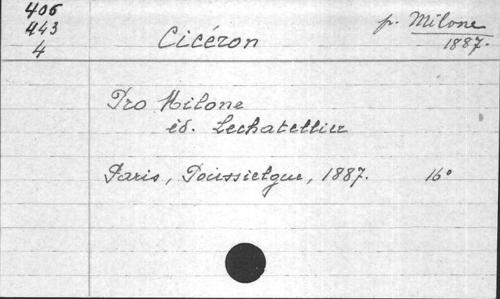 406
443
4
Cicéron
p. Milone
1887.
Pro Milone
éd. Lechatellier
Paris, Poussielgue, 1887. 16°